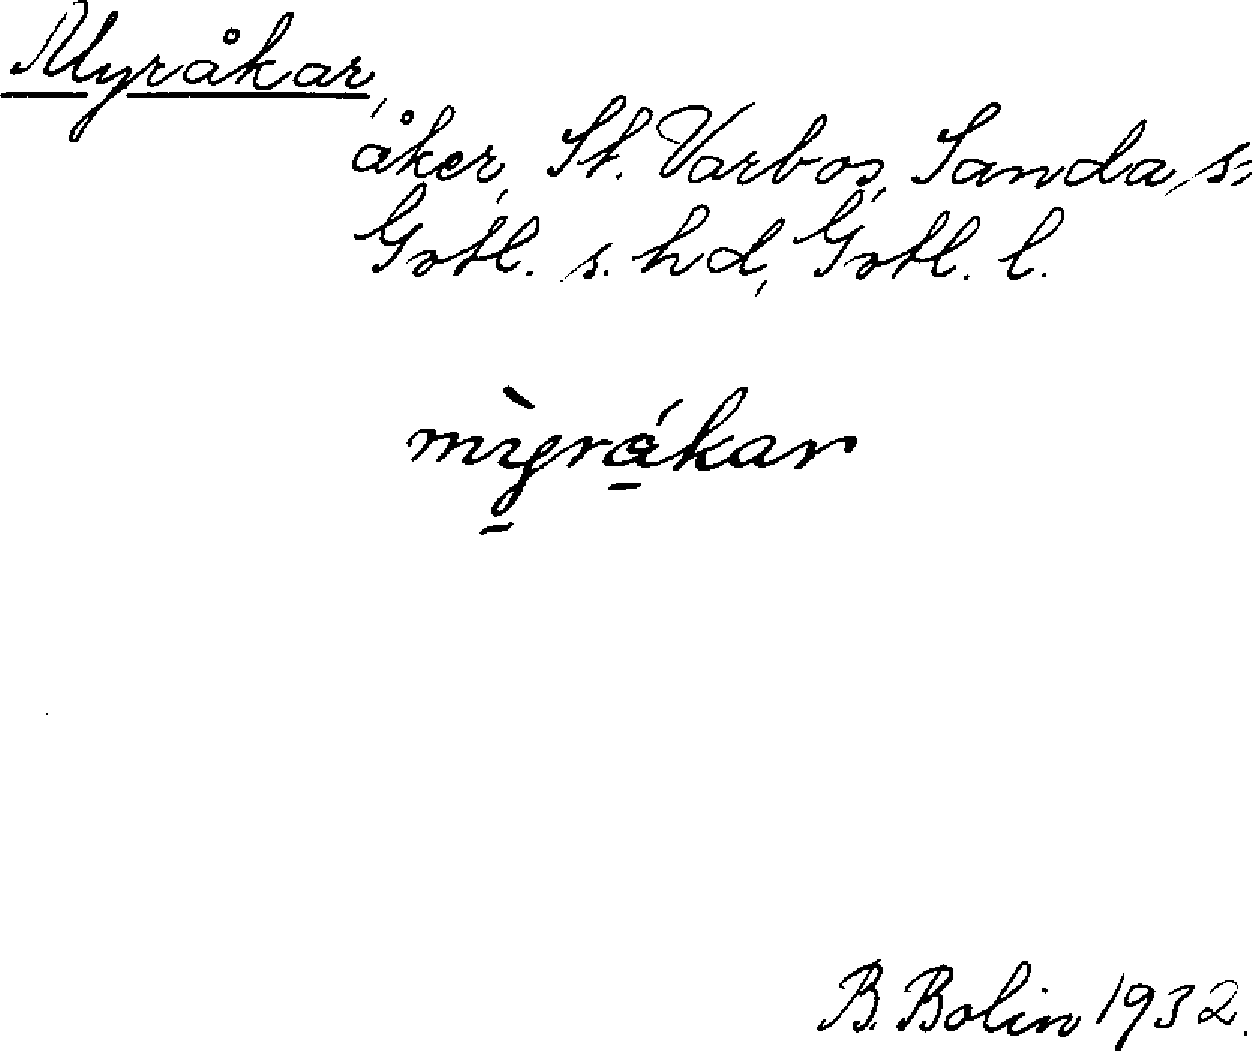 Myråkar,
åker, St. Varbos, Sanda s:
Gotl. s. hd, Gotl. l.
mỳrákar
B. Bolin 1932.